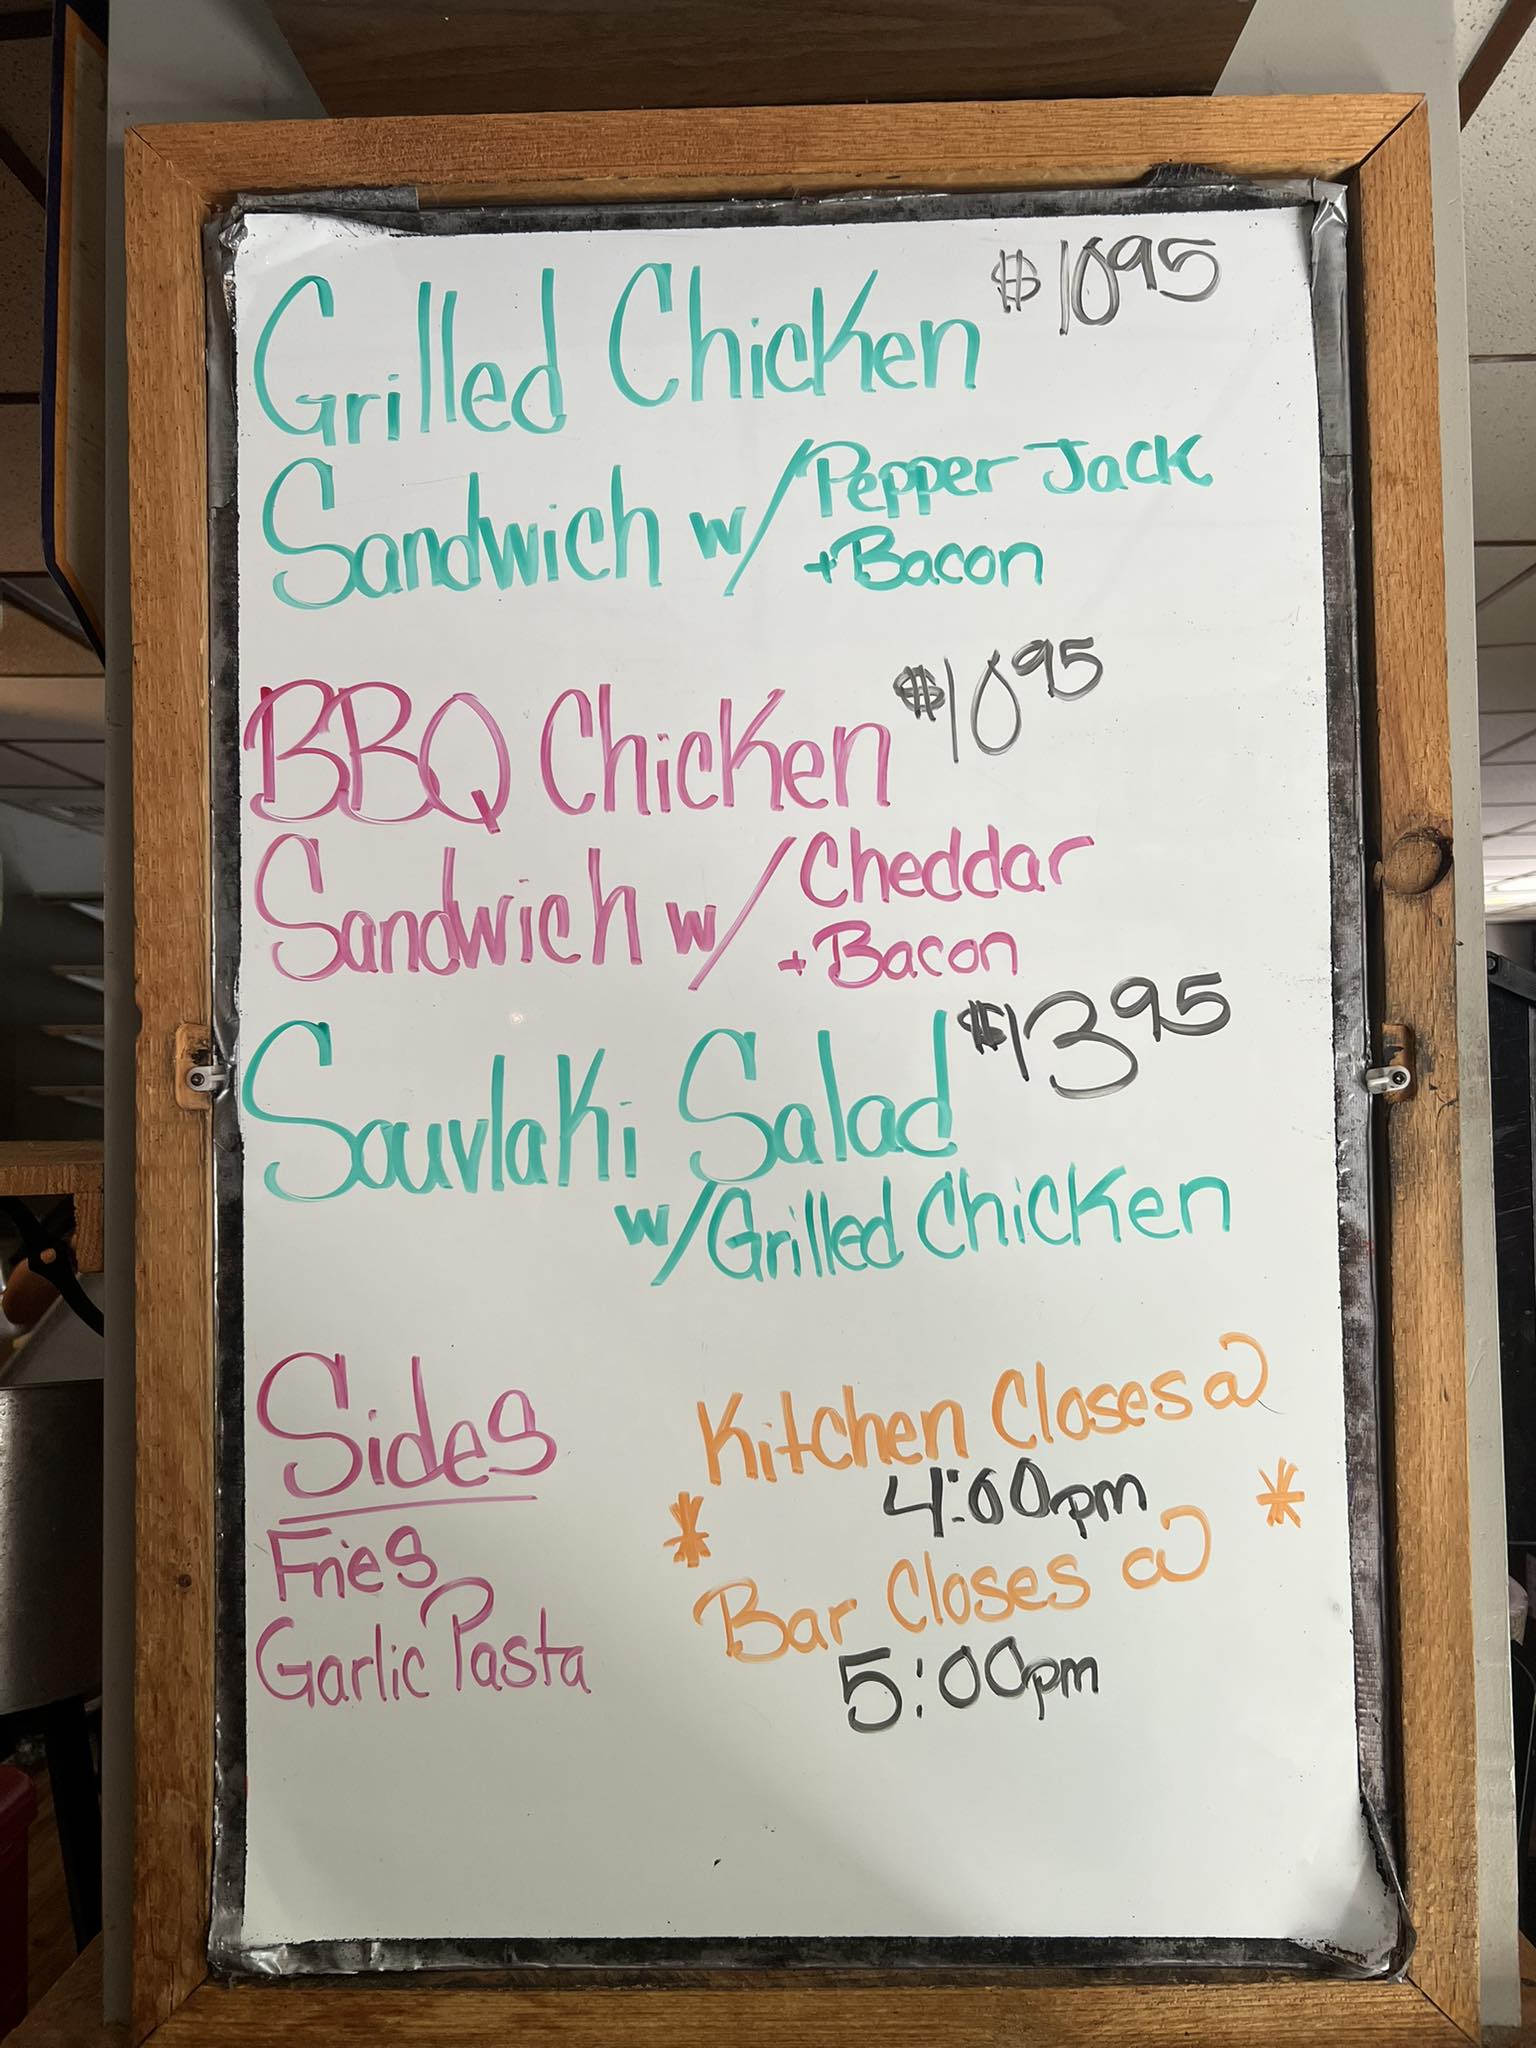 Grilled Chicken $10.95
Sandwich w/ Pepper Jack
+ Bacon
BBQ Chicken $10.95
Sandwich w/ Cheddar
+ Bacon
Souvlaki Salad $13.95
w/ Grilled Chicken
Sides
Fries
Garlic Pasta
Kitchen Closes @
4:00pm
* *
Bar Closes @
5:00pm